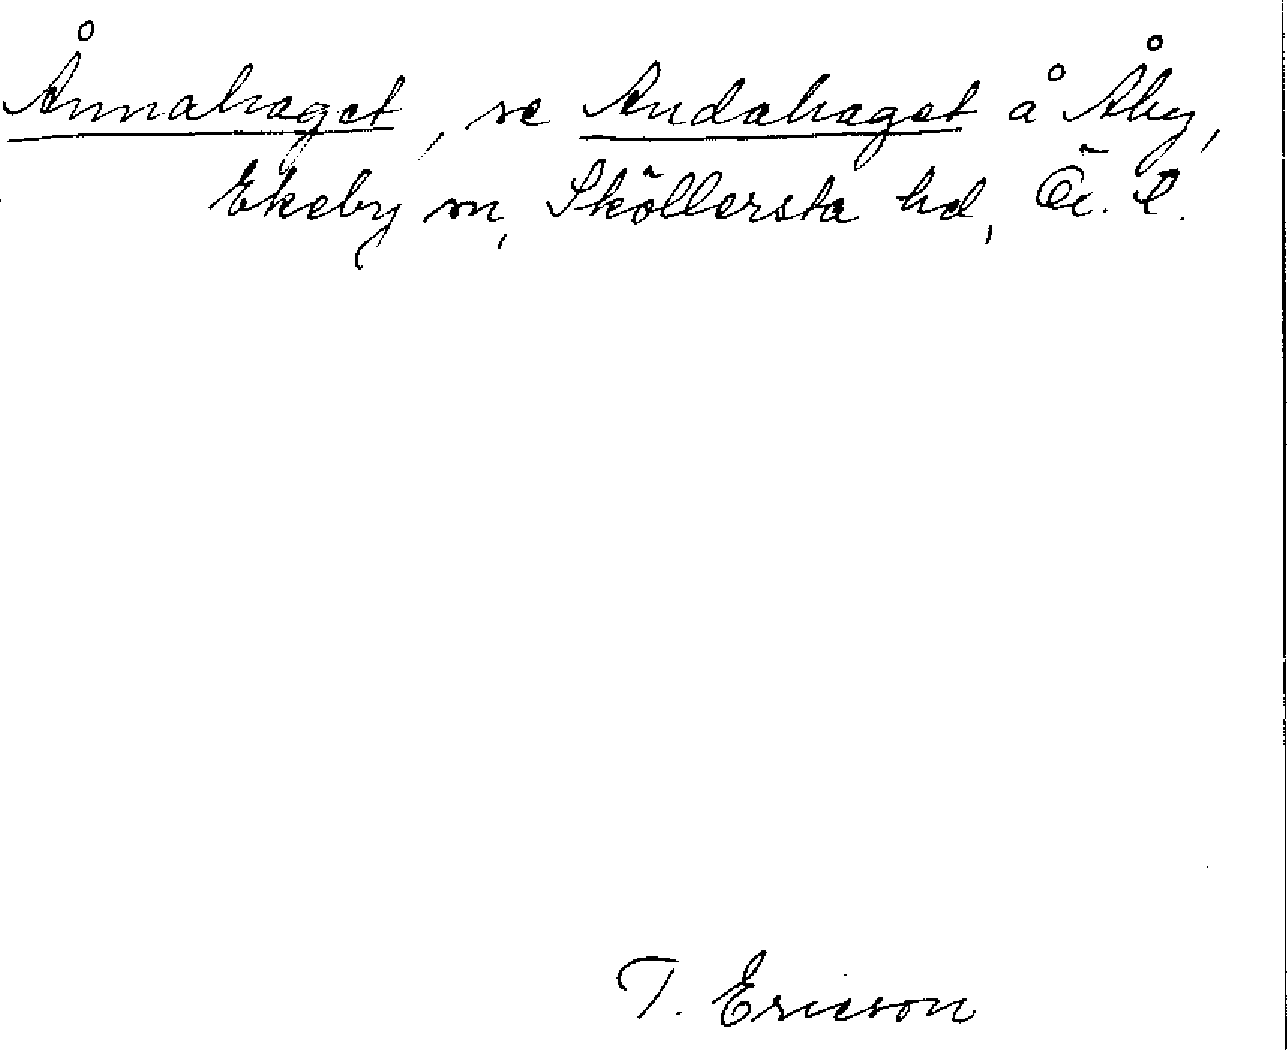 Ånnahaget, se Andahaget å Åby,
Ekeby sn, Sköllersta hd, Ör. l.
T. Ericson